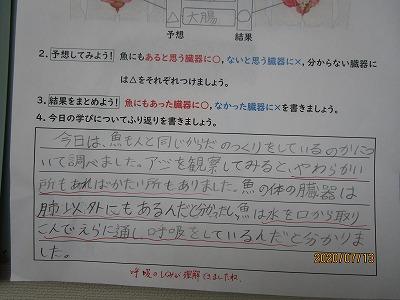 △ 大腸 ○
予想 結果
2. 予想してみよう! 魚にもあると思う臓器に○,ないと思う臓器に×,分からない臓器に
は△をそれぞれつけましょう。
3. 結果をまとめよう! 魚にもあった臓器に○,なかった臓器に×を書きましょう。
4. 今日の学びについてふり返りを書きましょう。
今日は、魚も人と同じからだのつくりをしているのかにつ
いて調べました。アジを観察してみると、やわらかい
所もあればかたい所もありました。魚の体の臓器は
肺以外にもあるんだと分かったし、魚は水を口から取り
こんでえらに通し呼吸をしているんだと分かりま
した。
呼吸のしくみが理解できましたね。
2020/07/13